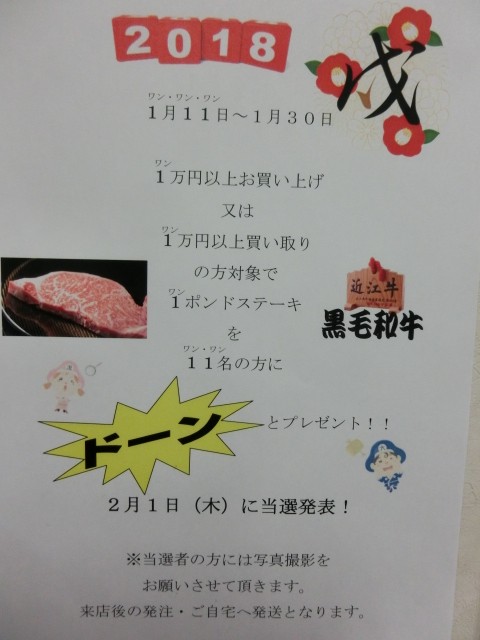 2018
戌
ワン・ワン・ワン
1月11日～1月30日
ワン
1万円以上お買い上げ
又は
ワン
1万円以上買い取り
の方対象で
ワン
1ポンドステーキ
を
ワン・ワン
11名の方に
近江牛
黒毛和牛
ドーン
とプレゼント！！
2月1日（木）に当選発表！
※当選者の方には写真撮影を
お願いさせて頂きます。
来店後の発注・ご自宅へ発送となります。